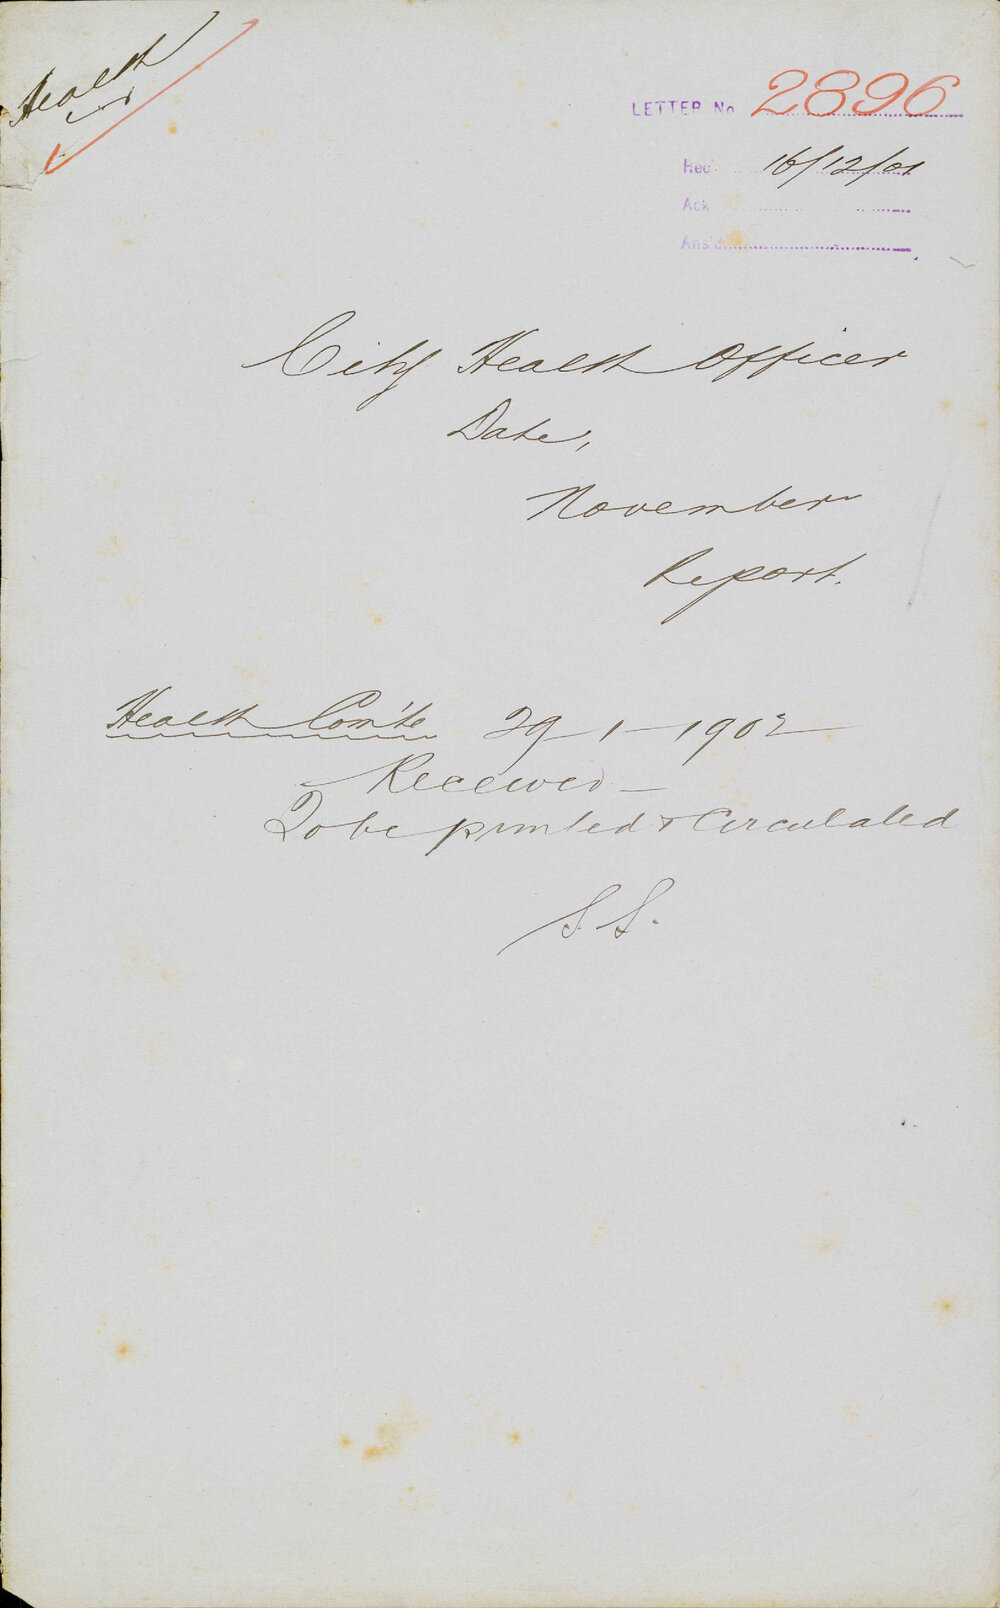 Health
LETTER No 2896
Rec 16/12/01
Ack
Ans'd
City Health Officer
Date,
November
Report.
Health Com'te 29-1-1902
Received -
To be printed & Circulated
S.S.